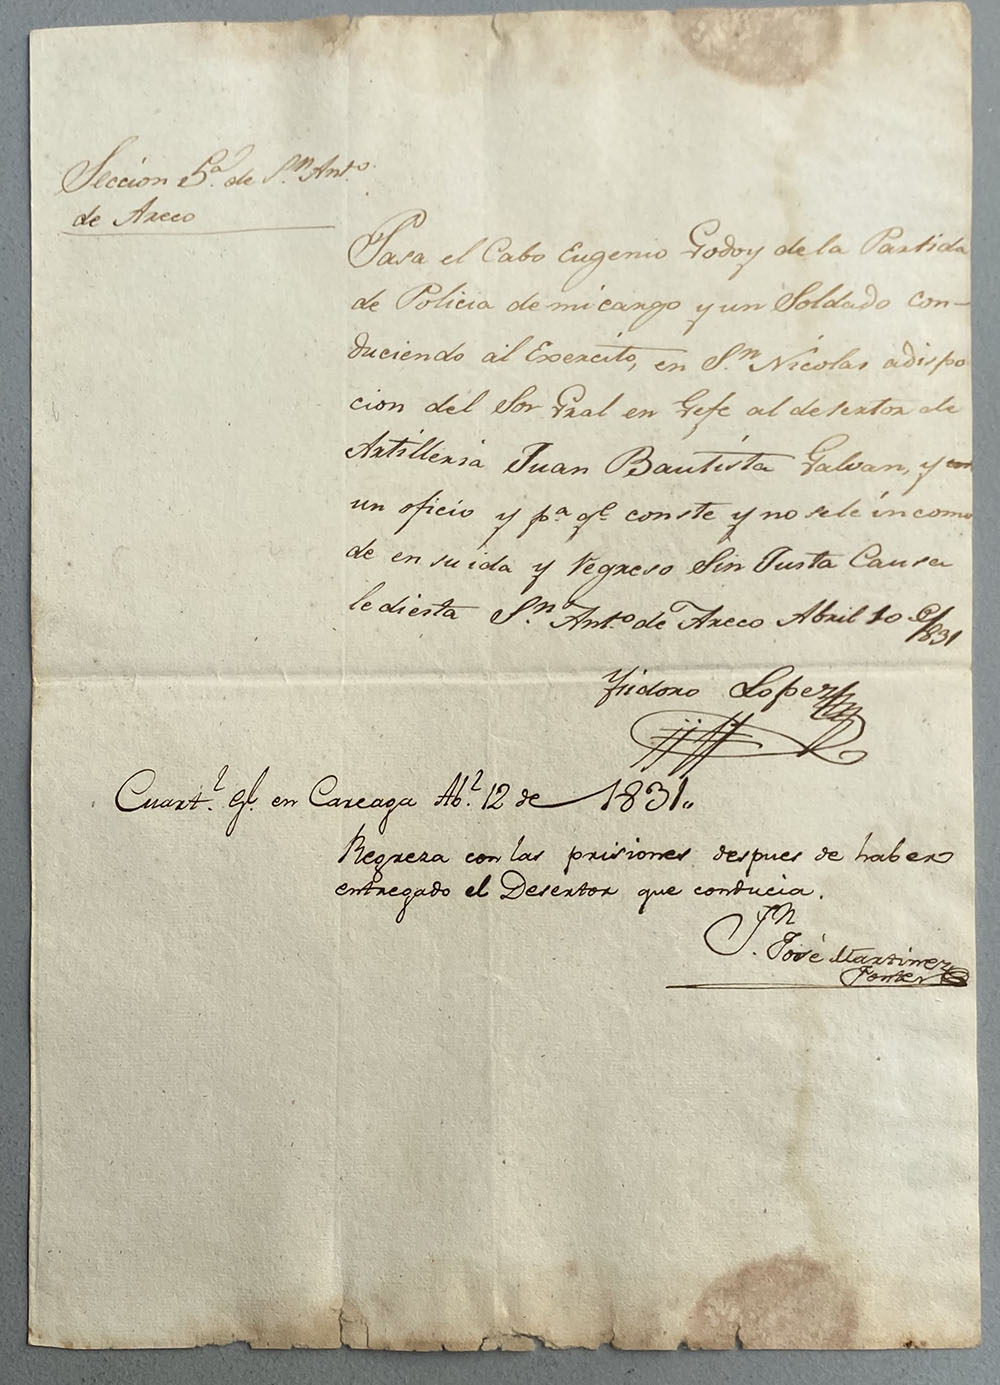 Seccion 5.ª de S.n Ant.o
de Areco
Pasa el Cabo Eugenio Godoy de la Partida
de Policia de mi cargo y un Soldado con-
duciendo al Exercito, en S.n Nicolas a dispo
cion del Sor Gral en Gefe al desertor de
Artilleria Juan Bautista Galvan, y con
un oficio y p.a q.e conste y no se le incomo
de en su ida y regreso Sin Justa Causa
le di esta S.n Ant.o de Areco Abril 10 de 1831
Ysidoro Lopez
Cuart.l gl. en Careaga Ab.l 12 de 1831..
Regreza con las prisiones despues de haber
entregado el Desertor que conducia.
José Martinez
Fontes